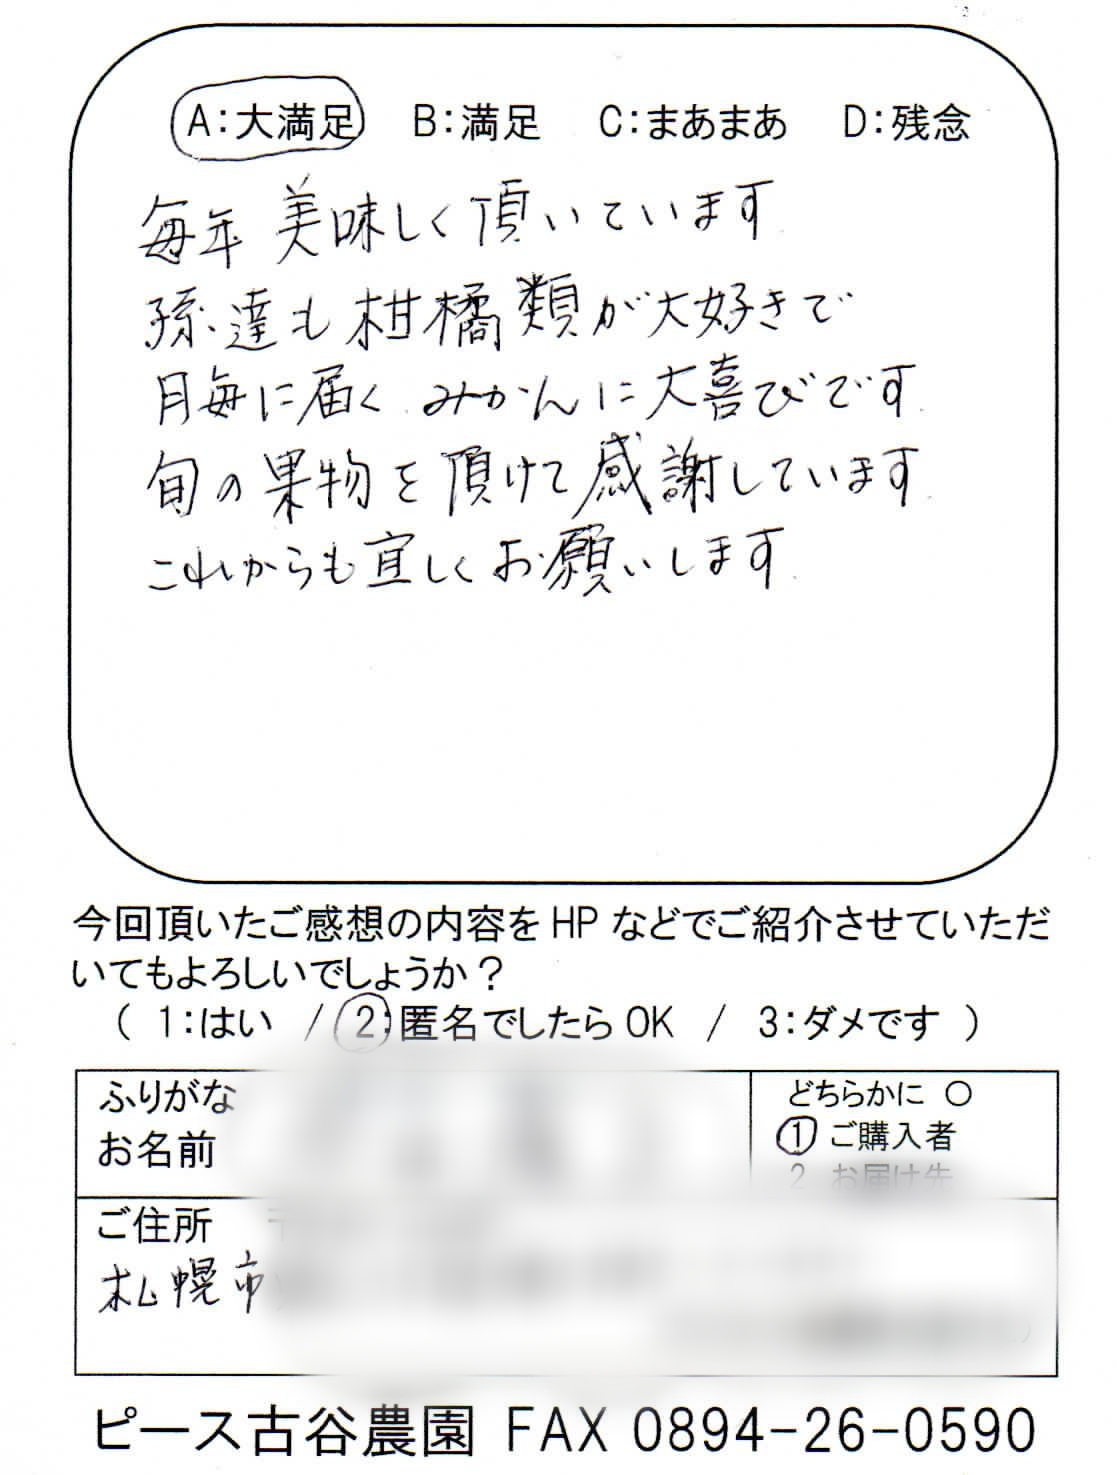 A:大満足 B:満足 C:まあまあ D:残念
毎年 美味しく頂いています
孫達も柑橘類が大好きで
月毎に届く みかんに大喜びです
旬の果物を頂けて感謝しています
これからも宜しくお願いします
今回頂いたご感想の内容を HP などでご紹介させていただ
いてもよろしいでしょうか？
( 1:はい / 2:匿名でしたら OK / 3:ダメです )
ふりがな
お名前
どちらかに ○
1 ご購入者
2 お届け先
ご住所 〒
札幌市
ピース古谷農園 FAX 0894-26-0590